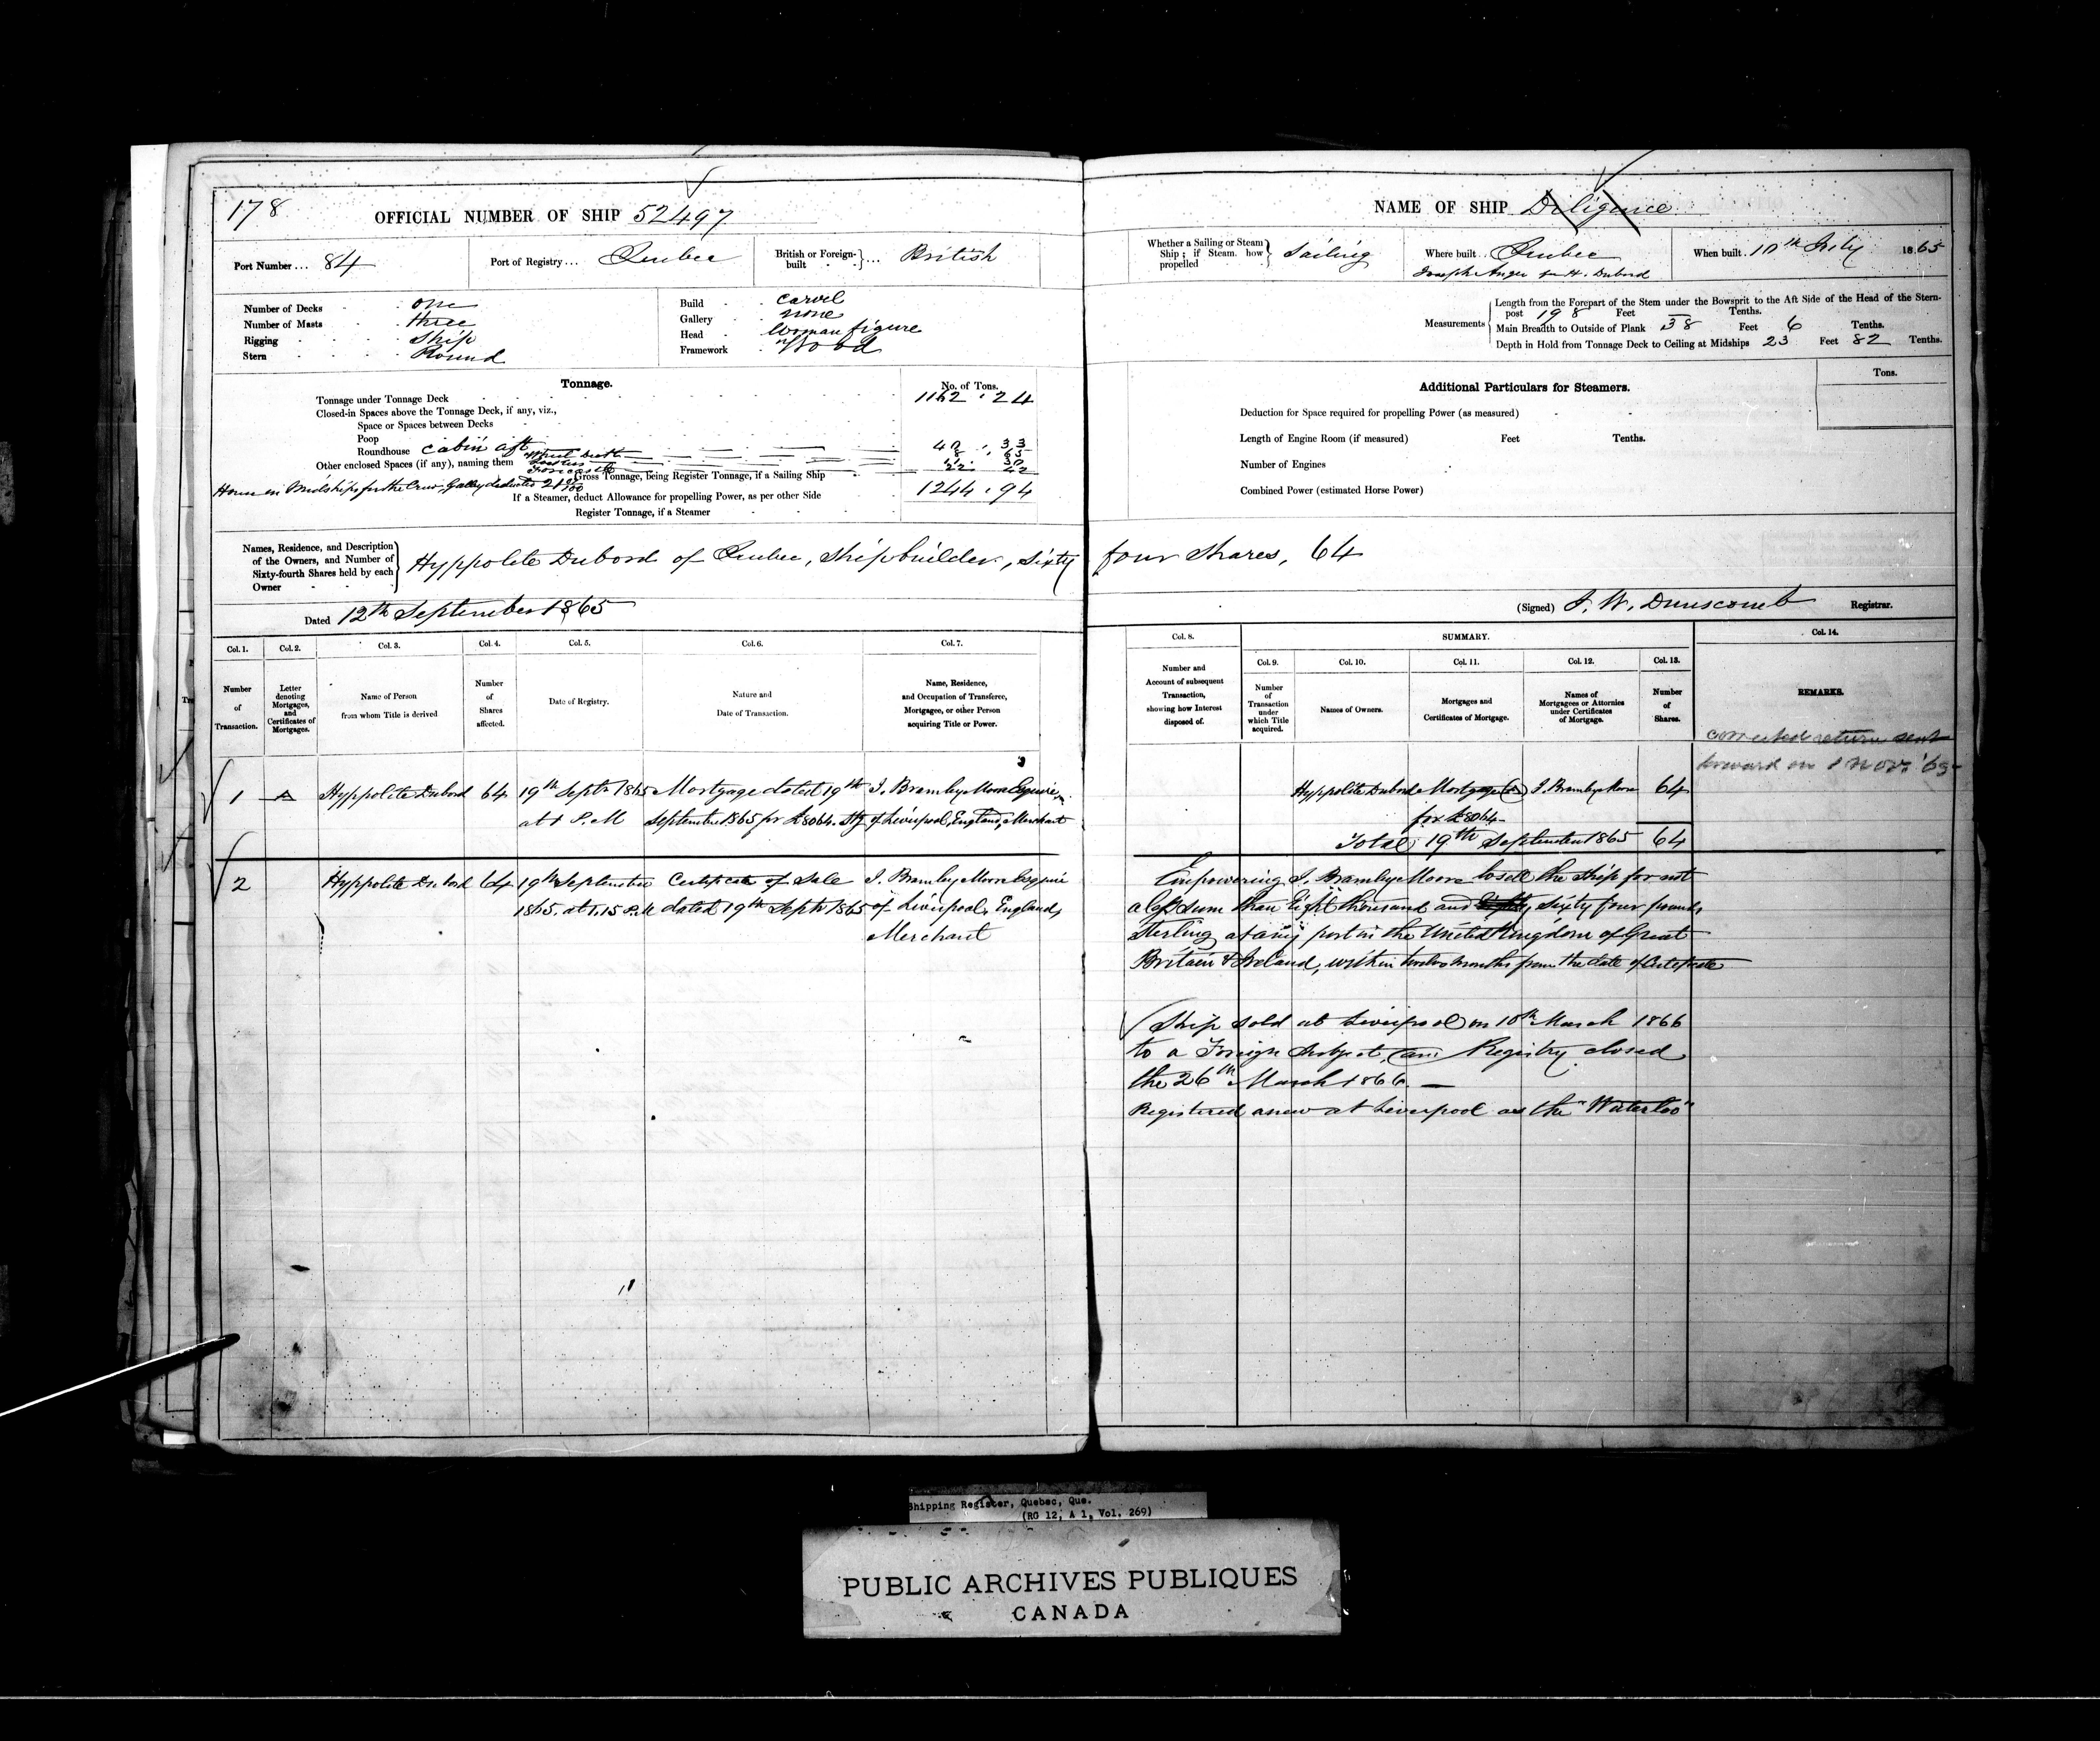 178
OFFICIAL NUMBER OF SHIP 52497
Port Number ... 84
Port of Registry ... Quebec
British or Foreign-built } ... British
Number of Decks one
Number of Masts three
Rigging Ship
Stern Round
Build carvel
Gallery none
Head Woman figure
Framework Wood
Tonnage.
No. of Tons.
Tonnage under Tonnage Deck 1162 . 24
Closed-in Spaces above the Tonnage Deck, if any, viz.,
Space or Spaces between Decks
Poop
Roundhouse cabin aft 33
Other enclosed Spaces (if any), naming them
Forecastle 22 42
Gross Tonnage, being Register Tonnage, if a Sailing Ship 1244 . 94
House in Midships for the Crew, Galley deducted
If a Steamer, deduct Allowance for propelling Power, as per other Side
Register Tonnage, if a Steamer
Names, Residence, and Description
of the Owners, and Number of
Sixty-fourth Shares held by each
Owner
Hyppolite Dubord of Quebec, Shipbuilder, Sixty
Dated 12th September 1865
Col. 1. Col. 2. Col. 3. Col. 4. Col. 5. Col. 6. Col. 7.
Number of Transaction.
Letter denoting Mortgages, and Certificates of Mortgages.
Name of Person from whom Title is derived
Number of Shares affected.
Date of Registry.
Nature and Date of Transaction.
Name, Residence, and Occupation of Transferee, Mortgagee, or other Person acquiring Title or Power.
1 A Hyppolite Dubord 64 19th Septr 1865 Mortgage dated 19th J. Bramley Moore Esquire
at 1 P.M September 1865 for £8064. Stg of Liverpool, England, Merchant
2 Hyppolite Dubord 64 19th September Certificate of Sale J. Bramley Moore Esquire
1865. at 1.15 P.M dated 19th Septr 1865 of Liverpool, England,
Merchant
NAME OF SHIP Diligence
Whether a Sailing or Steam Ship ; if Steam, how propelled } Sailing
Where built .. Quebec
Joseph Angers for H. Dubord
When built . 10th July 1865
Measurements
Length from the Forepart of the Stem under the Bowsprit to the Aft Side of the Head of the Stern-
post 198 Feet Tenths.
Main Breadth to Outside of Plank 38 Feet 6 Tenths.
Depth in Hold from Tonnage Deck to Ceiling at Midships 23 Feet 82 Tenths.
Additional Particulars for Steamers.
Tons.
Deduction for Space required for propelling Power (as measured)
Length of Engine Room (if measured) Feet Tenths.
Number of Engines
Combined Power (estimated Horse Power)
four Shares, 64
(Signed) J. W. Dunscomb Registrar.
Col. 8. SUMMARY. Col. 14.
Col. 9. Col. 10. Col. 11. Col. 12. Col. 13.
Number and Account of subsequent Transaction, showing how Interest disposed of.
Number of Transaction under which Title acquired.
Names of Owners.
Mortgages and Certificates of Mortgage.
Names of Mortgagees or Attornies under Certificates of Mortgage.
Number of Shares.
REMARKS.
corrected return sent
forward on 1 Nov: '65
Hyppolite Dubord Mortgage (A) J. Bramley Moore 64
for £8064
Total 19th September 1865 64
Empowering J. Bramley Moore to sell the Ship for not
a less sum than Eight thousand and sixty four pounds
Sterling at any port in the United Kingdom of Great
Britain & Ireland, within twelve months from the date of Certificate
Ship sold at Liverpool on 10th March 1866
to a Foreign Subject, and Registry closed
the 26th March 1866. —
Registered anew at Liverpool as the "Waterloo"
Shipping Register, Quebec, Que.
(RG 12, A 1, Vol. 269)
PUBLIC ARCHIVES PUBLIQUES
CANADA